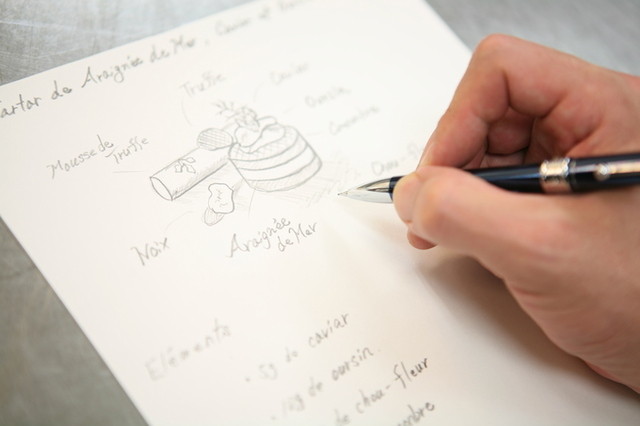 Tartar de Araignée de Mer, Caviar et
Truffe
Caviar
Oursin
Mousse de Truffe
Noix
Araignée
de Mer
Eléments
• 5g de caviar
de oursin.
de chou-fleur